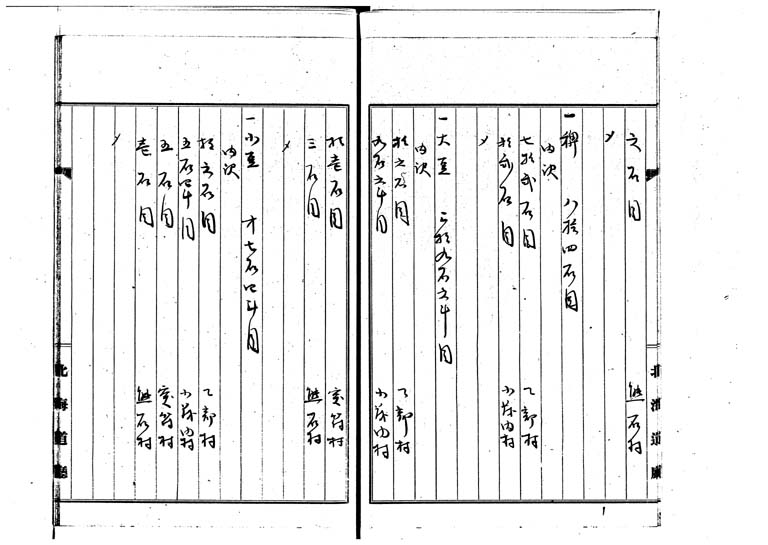 北海道廳
六石目 熊石村
〆
一稗 八拾四石目
内次
七拾弐石目 乙部村
拾弐石目 小茂内村
〆
一大豆 三拾九石六斗目
内次
拾六石目 乙部村
九石六斗目 小茂内村
拾壱石目 突符村
三石目 熊石村
〆
一小豆 廿七石四斗目
内次
拾六石目 乙部村
五石四斗目 小茂内村
五石目 突符村
壱石目 熊石村
〆
北海道廳